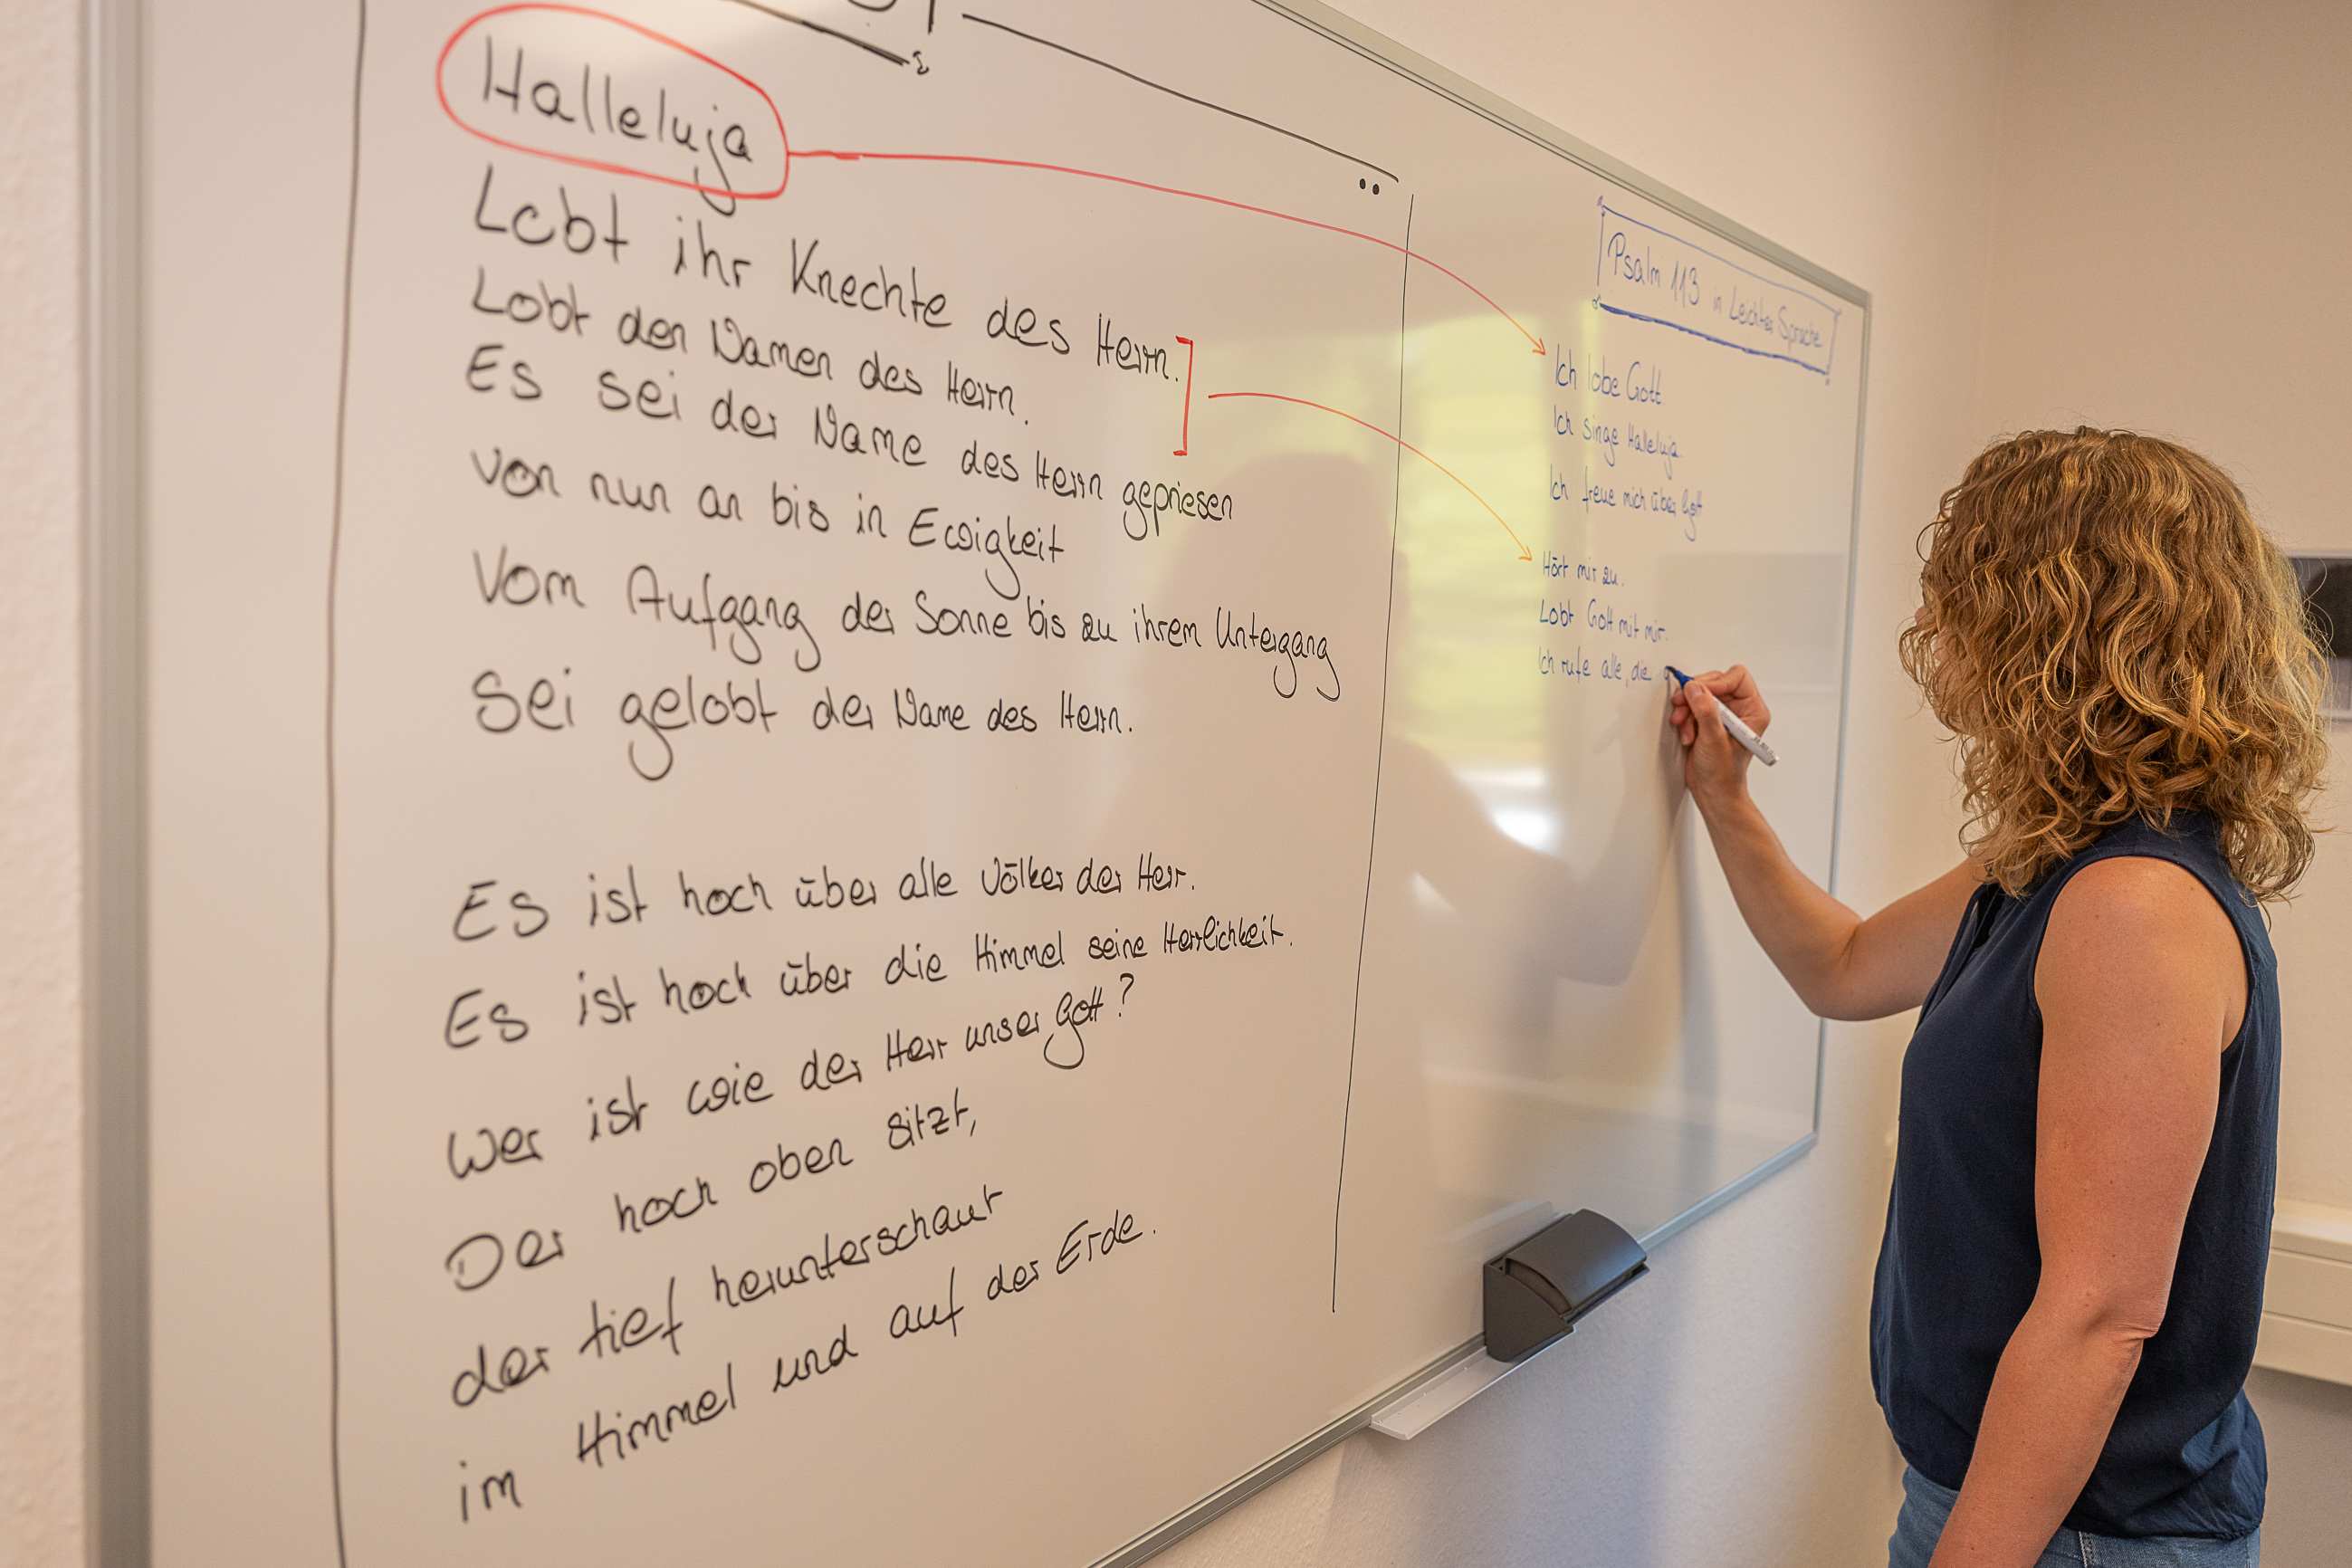 Halleluja
Lobt ihr Knechte des Herrn.
Lobt den Namen des Herrn.
Es sei der Name des Herrn gepriesen
von nun an bis in Ewigkeit
Vom Aufgang der Sonne bis zu ihrem Untergang
Sei gelobt der Name des Herrn.
Es ist hoch über alle Völker der Herr.
Es ist hoch über die Himmel seine Herrlichkeit.
Wer ist wie der Herr unser Gott?
Der hoch oben sitzt,
der tief herunterschaut
im Himmel und auf der Erde.
Psalm 113 in Leichter Sprache
Ich lobe Gott.
Ich singe Halleluja.
Ich freue mich über Gott
Hört mir zu.
Lobt Gott mit mir.
Ich rufe alle, die